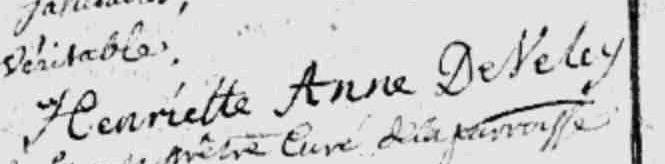 véritable.
Henriette Anne DeVeley
prêtre Curé de la parroisse